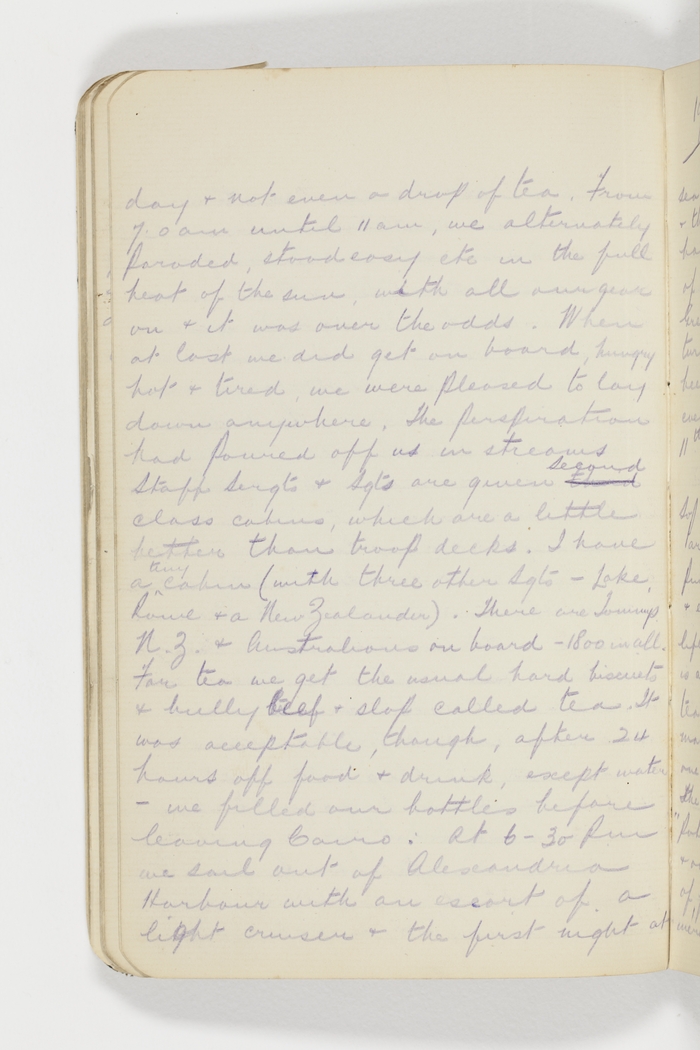 day & not even a drop of tea. From
7.0 am until 11 am, we alternately
paraded, stood easy etc in the full
heat of the sun, with all our gear
on & it was over the odds. When
at last we did get on board, hungry
hot & tired, we were pleased to lay
down anywhere. The perspiration
had poured off us in streams
Staff Sergts & Sgts are given second
class cabins, which are a little
better than troop decks. I have
a tiny cabin (with three other Sgts - Lake,
Rowe & a New Zealander). There are Tommys
N.Z. & Australians on board - 1800 in all.
For tea we get the usual hard biscuits
& bully beef & slop called tea. It
was acceptable, though, after 24
hours off food & drink, except water
- we filled our bottles before
leaving Cairo: At 6-30 pm
we sail out of Alexandria
Harbour with an escort of a
light cruiser & the first night at